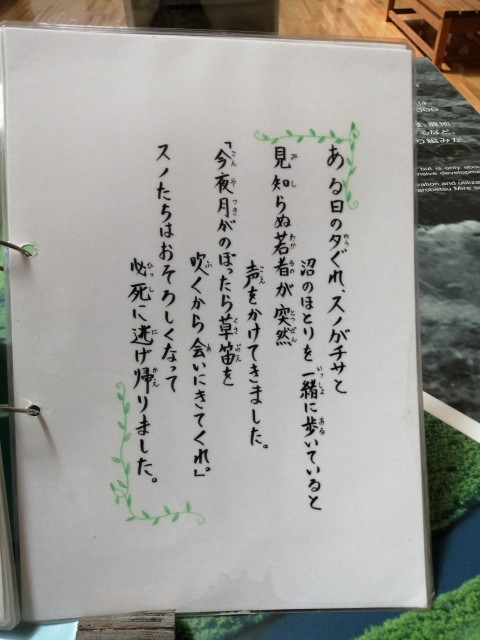 ある日の夕ぐれ、スノがチサと
沼のほとりを一緒に歩いていると
見知らぬ若者が突然
声をかけてきました。
「今夜月がのぼったら草笛を
吹くから会いにきてくれ。」
スノたちはおそろしくなって
必死に逃げ帰りました。
but is only abou
ensive developmen
vation and utilizat
arobetsu Mire s